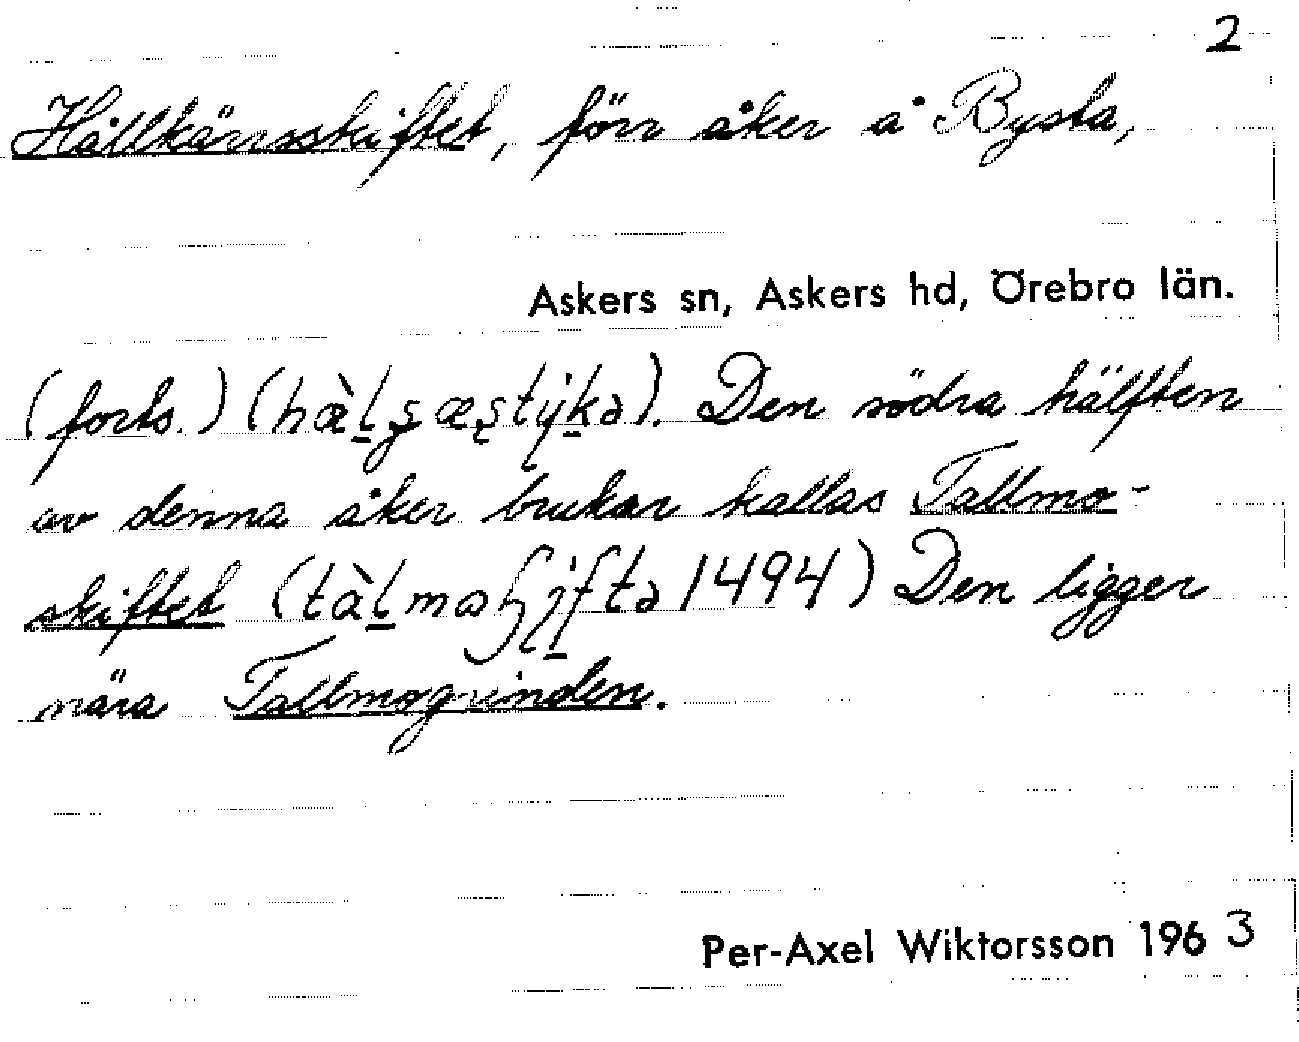 2
Hållkärrsskiftet, förr åker å Bysta,
Askers sn, Askers hd, Örebro län.
(forts.) Den södra hälften
av denna åker brukar kallas Tallmo-
skiftet 1494) Den ligger
nära Tallmogrinden.
Per-Axel Wiktorsson 1963